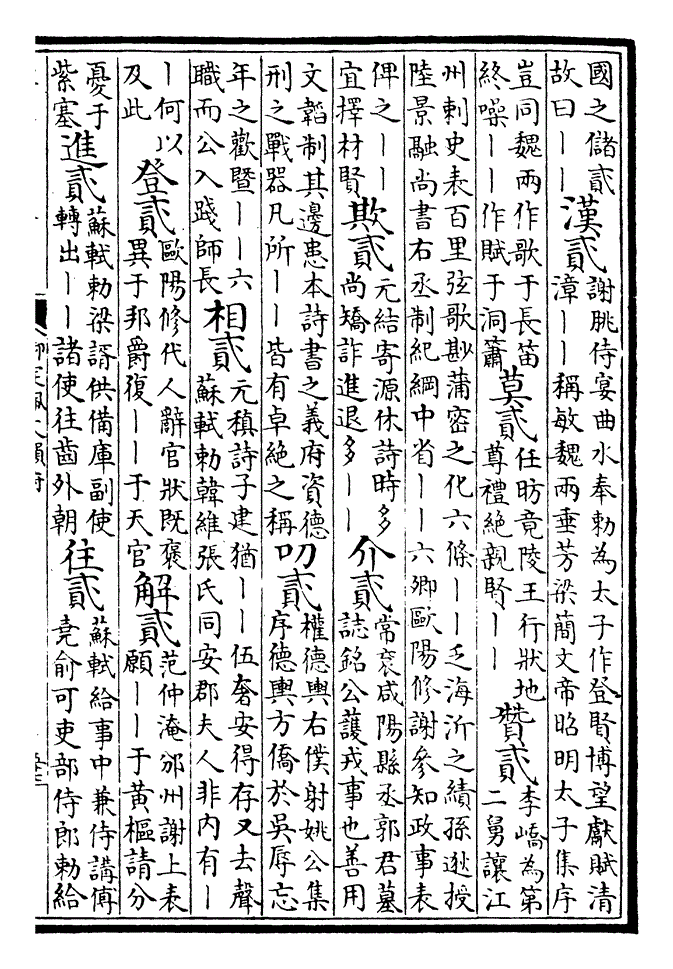 國之儲貳
故曰——
漢貳
謝朓侍宴曲水奉勅為太子作登賢博望獻賦清
漳——稱敏魏兩垂芳梁簡文帝昭明太子集序
豈同魏兩作歌于長笛
終噪——作賦于洞簫
莫貳
任昉竟陵王行狀地
尊禮絕親賢——
贊貳
李嶠為第
二舅讓江
州刺史表百里弦歌尠蒲密之化六條——乏海沂之績孫逖授
陸景融尚書右丞制紀綱中省——六卿歐陽修謝參知政事表
俾之——
宜擇材賢
欺貳
元結寄源休詩時多
尚矯詐進退多——
介貳
常袞咸陽縣丞郭君墓
誌銘公護戎事也善用
文韜制其邊患本詩書之義府資德
刑之戰器凡所——皆有卓絕之稱
叨貳
權德輿右僕射姚公集
序德輿方僑於吳辱忘
年之歡暨——六
職而公入踐師長
相貳
元稹詩子建猶——伍奢安得存又去聲
蘇軾勅韓維張氏同安郡夫人非内有—
—何以
及此
登貳
歐陽修代人辭官狀既褒
異于邦爵復——于天官
解貳
范仲淹邠州謝上表
願——于黄樞請分
憂于
紫塞
進貳
蘇軾勅梁諝供備庫副使
轉出——諸使往齒外朝
往貳
蘇軾給事中兼侍講傅
堯俞可吏部侍郎勅給